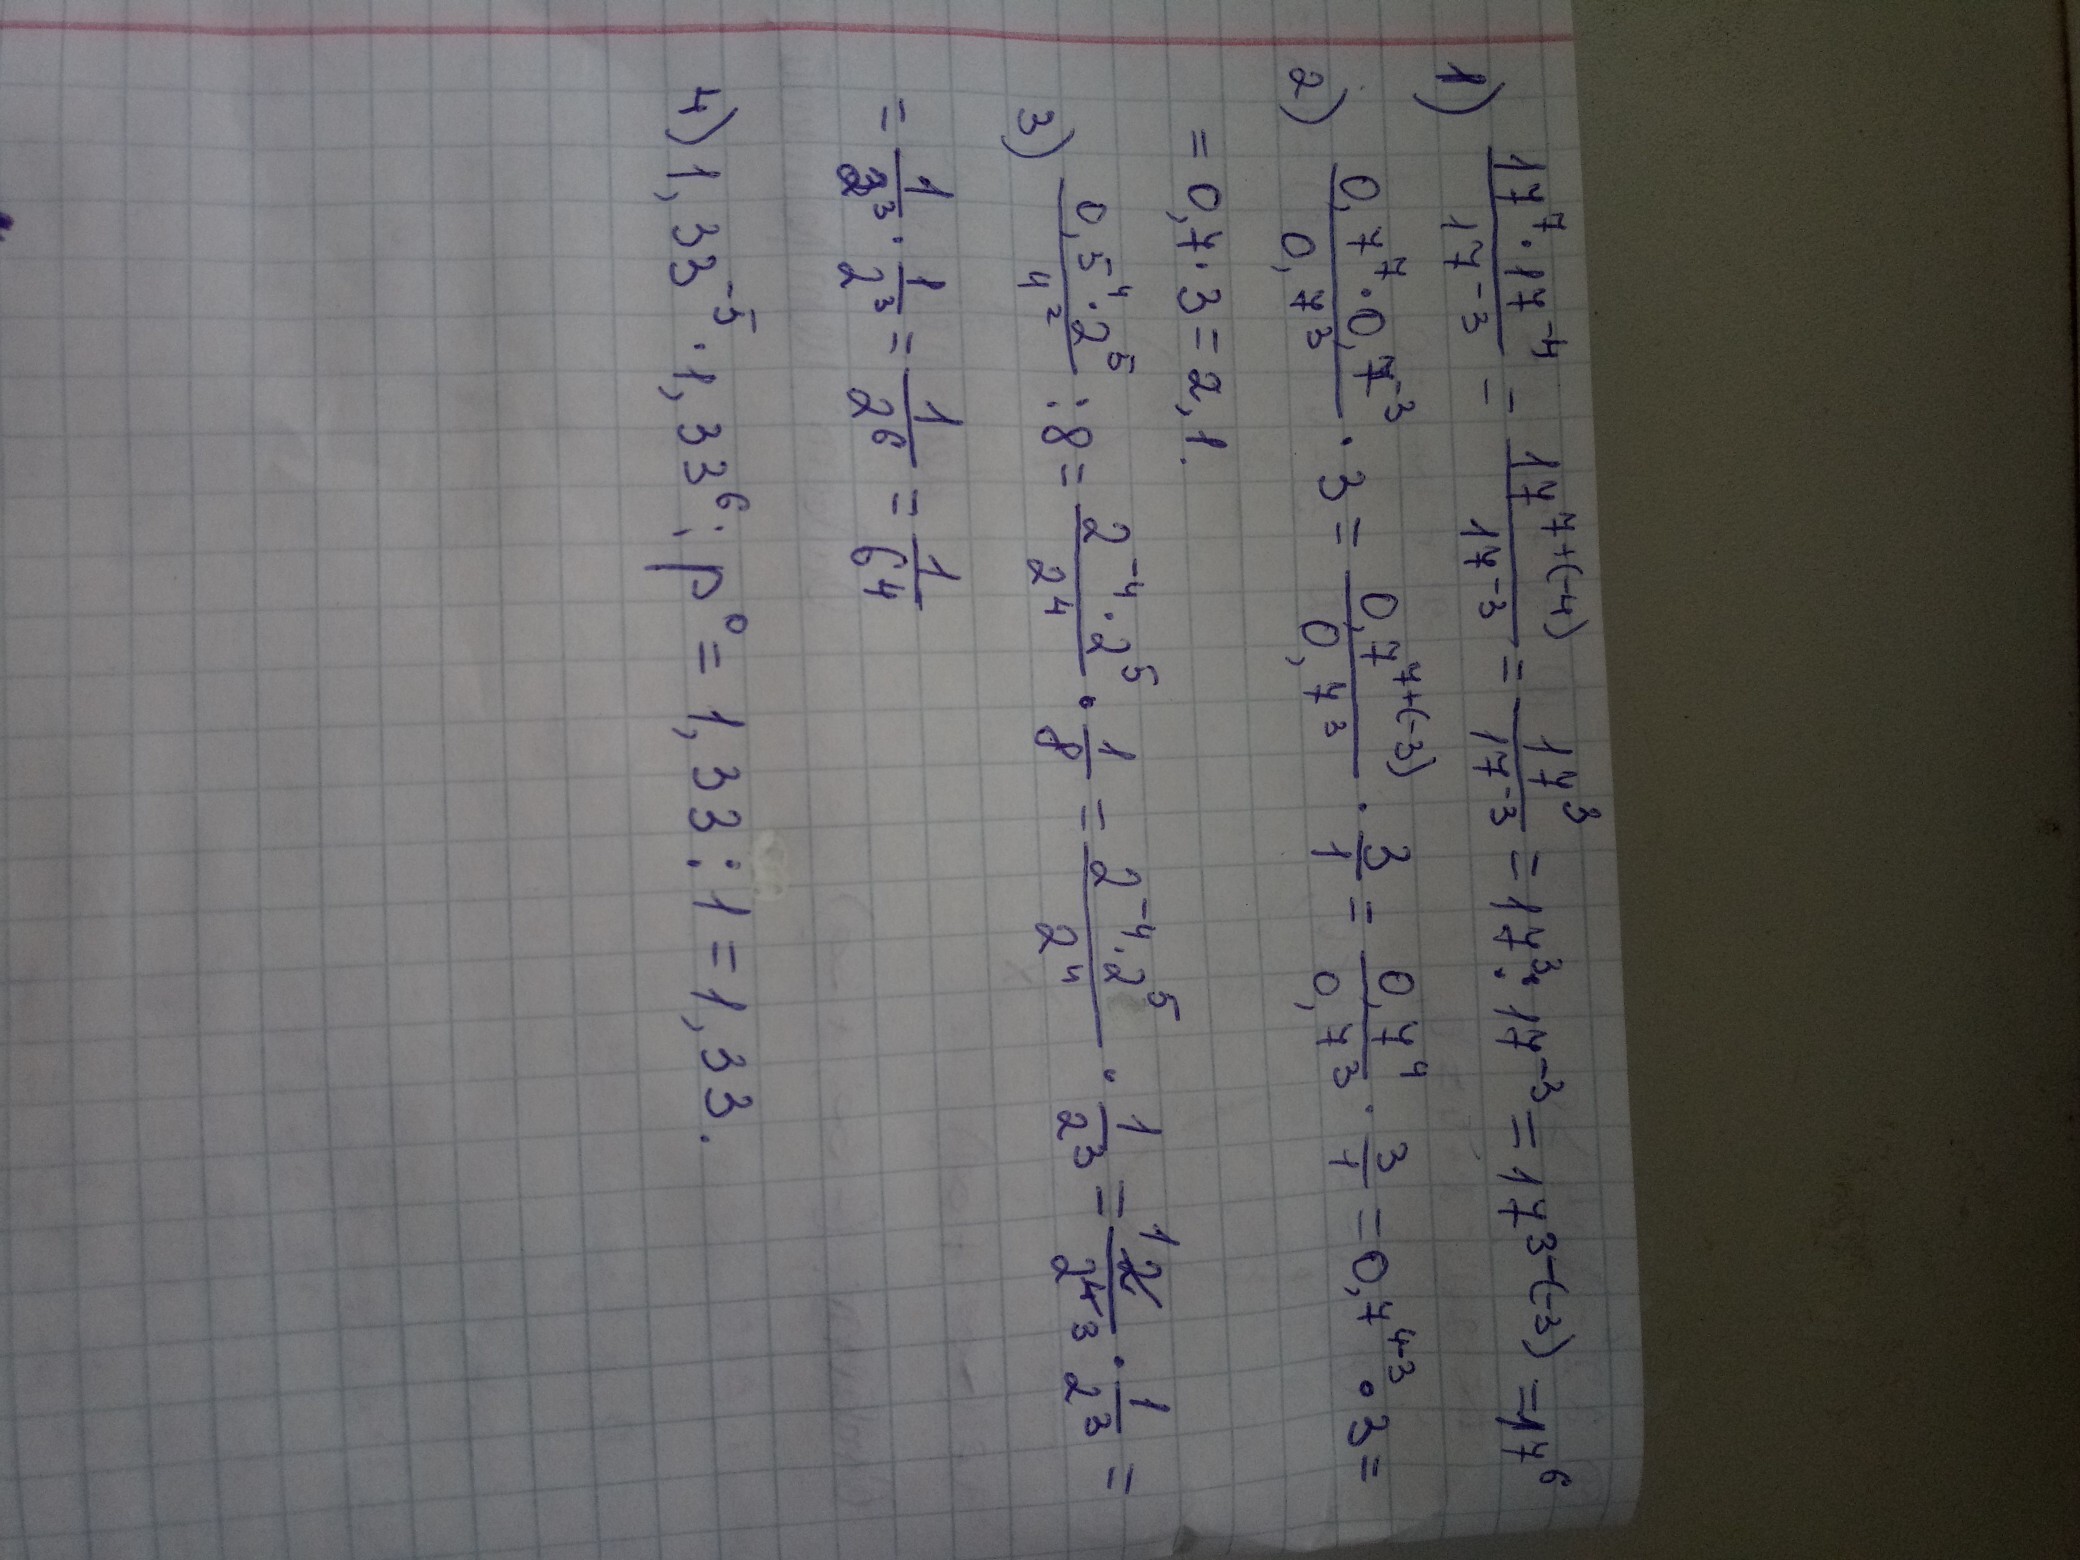 1) \frac{17^7 · 17^{-4}}{17^{-3}} = \frac{17^{7+(-4)}}{17^{-3}} = \frac{17^3}{17^{-3}} = 17^3 : 17^{-3} = 17^{3-(-3)} = 17^6
2) \frac{0,7^7 · 0,7^{-3}}{0,7^3} · 3 = \frac{0,7^{7+(-3)}}{0,7^3} · \frac{3}{1} = \frac{0,7^4}{0,7^3} · \frac{3}{1} = 0,7^{4-3} · 3 =
= 0,7 · 3 = 2,1.
3) \frac{0,5^4 · 2^5}{4^2} : 8 = \frac{2^{-4} · 2^5}{2^4} · \frac{1}{8} = \frac{2^{-4} · 2^5}{2^4} · \frac{1}{2^3} = \frac{2}{2^4} · \frac{1}{2^3} =
= \frac{1}{2^3} · \frac{1}{2^3} = \frac{1}{2^6} = \frac{1}{64}
4) 1,33^{-5} · 1,33^6 : p^0 = 1,33 : 1 = 1,33.